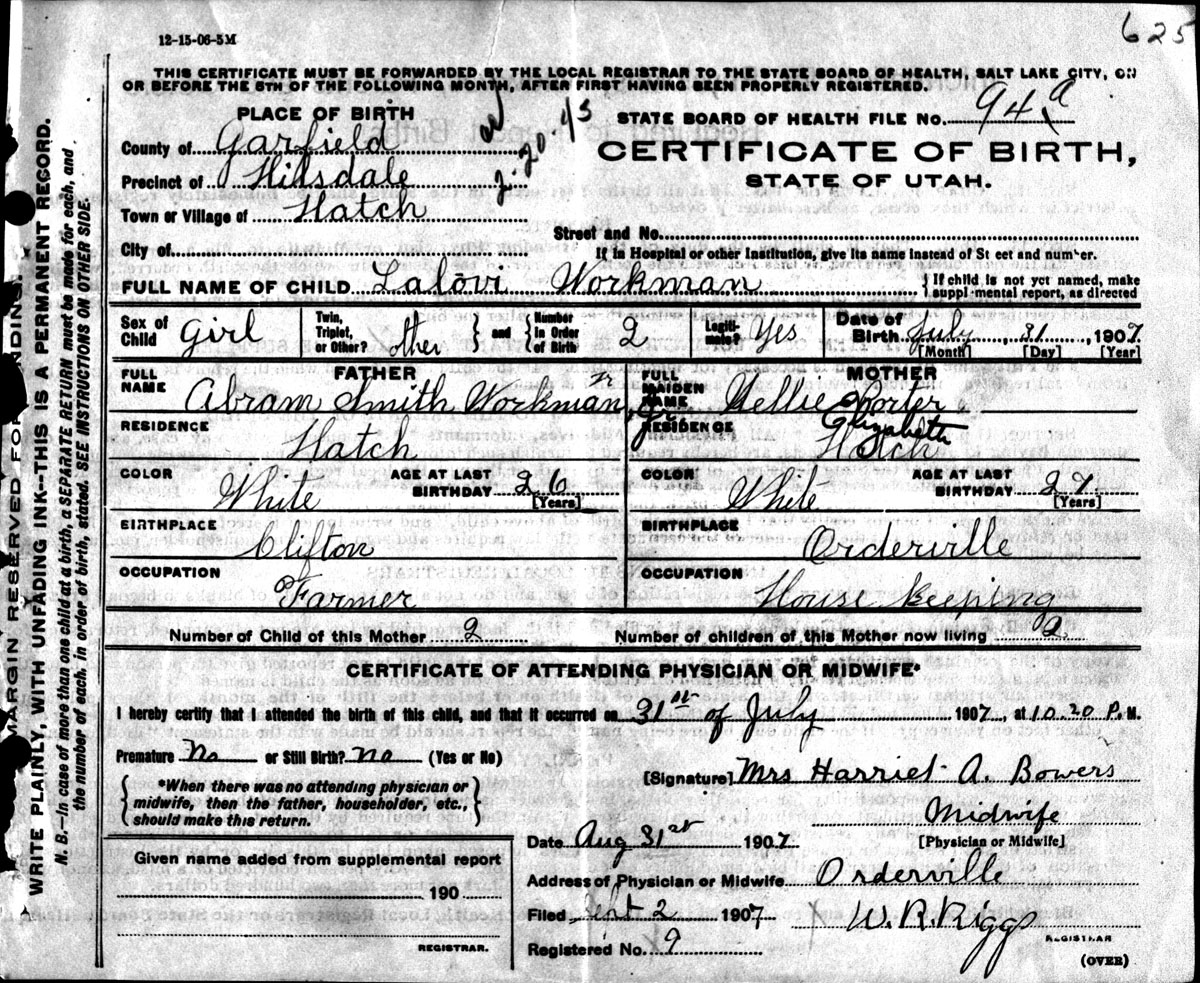 625
12-15-06-5M
THIS CERTIFICATE MUST BE FORWARDED BY THE LOCAL REGISTRAR TO THE STATE BOARD OF HEALTH, SALT LAKE CITY, ON
OR BEFORE THE 5TH OF THE FOLLOWING MONTH, AFTER FIRST HAVING BEEN PROPERLY REGISTERED.
PLACE OF BIRTH
County of Garfield
Precinct of Hillsdale
Town or Village of Hatch
City of
STATE BOARD OF HEALTH FILE No. 94
CERTIFICATE OF BIRTH,
STATE OF UTAH.
Street and No.
If in Hospital or other Institution, give its name instead of St eet and number.
FULL NAME OF CHILD Lalovi Workman
If child is not yet named, make
suppl mental report, as directed
Sex of Child Girl
Twin, Triplet, or Other? other and Number in Order of Birth 2
Legitimate? Yes
Date of Birth July 31 1907
[Month] [Day] [Year]
FATHER
FULL NAME Abram Smith Workman, Jr.
RESIDENCE Hatch
COLOR White AGE AT LAST BIRTHDAY 26 [Years]
BIRTHPLACE Clifton
OCCUPATION Farmer
MOTHER
FULL MAIDEN NAME Nellie Elizabeth Porter
RESIDENCE Hatch
COLOR White AGE AT LAST BIRTHDAY 27 [Years]
BIRTHPLACE Orderville
OCCUPATION House Keeping
Number of Child of this Mother 2 Number of children of this Mother now living 2
CERTIFICATE OF ATTENDING PHYSICIAN OR MIDWIFE*
I hereby certify that I attended the birth of this child, and that it occurred on 31st of July 1907, at 10.20 P.M.
Premature No or Still Birth? No (Yes or No)
*When there was no attending physician or
midwife, then the father, householder, etc.,
should make this return.
[Signature] Mrs Harriet A. Bowers
Midwife
[Physician or Midwife]
Date Aug 31st 1907
Address of Physician or Midwife Orderville
Filed Sept 2 1907 W. R. Riggs
REGISTRAR
Registered No. 9
(OVER)
Given name added from supplemental report
190
REGISTRAR.
MARGIN RESERVED FOR BINDING.
WRITE PLAINLY, WITH UNFADING INK—THIS IS A PERMANENT RECORD.
N. B.—In case of more than one child at a birth, a SEPARATE RETURN must be made for each, and
the number of each, in order of birth, stated. SEE INSTRUCTIONS ON OTHER SIDE.